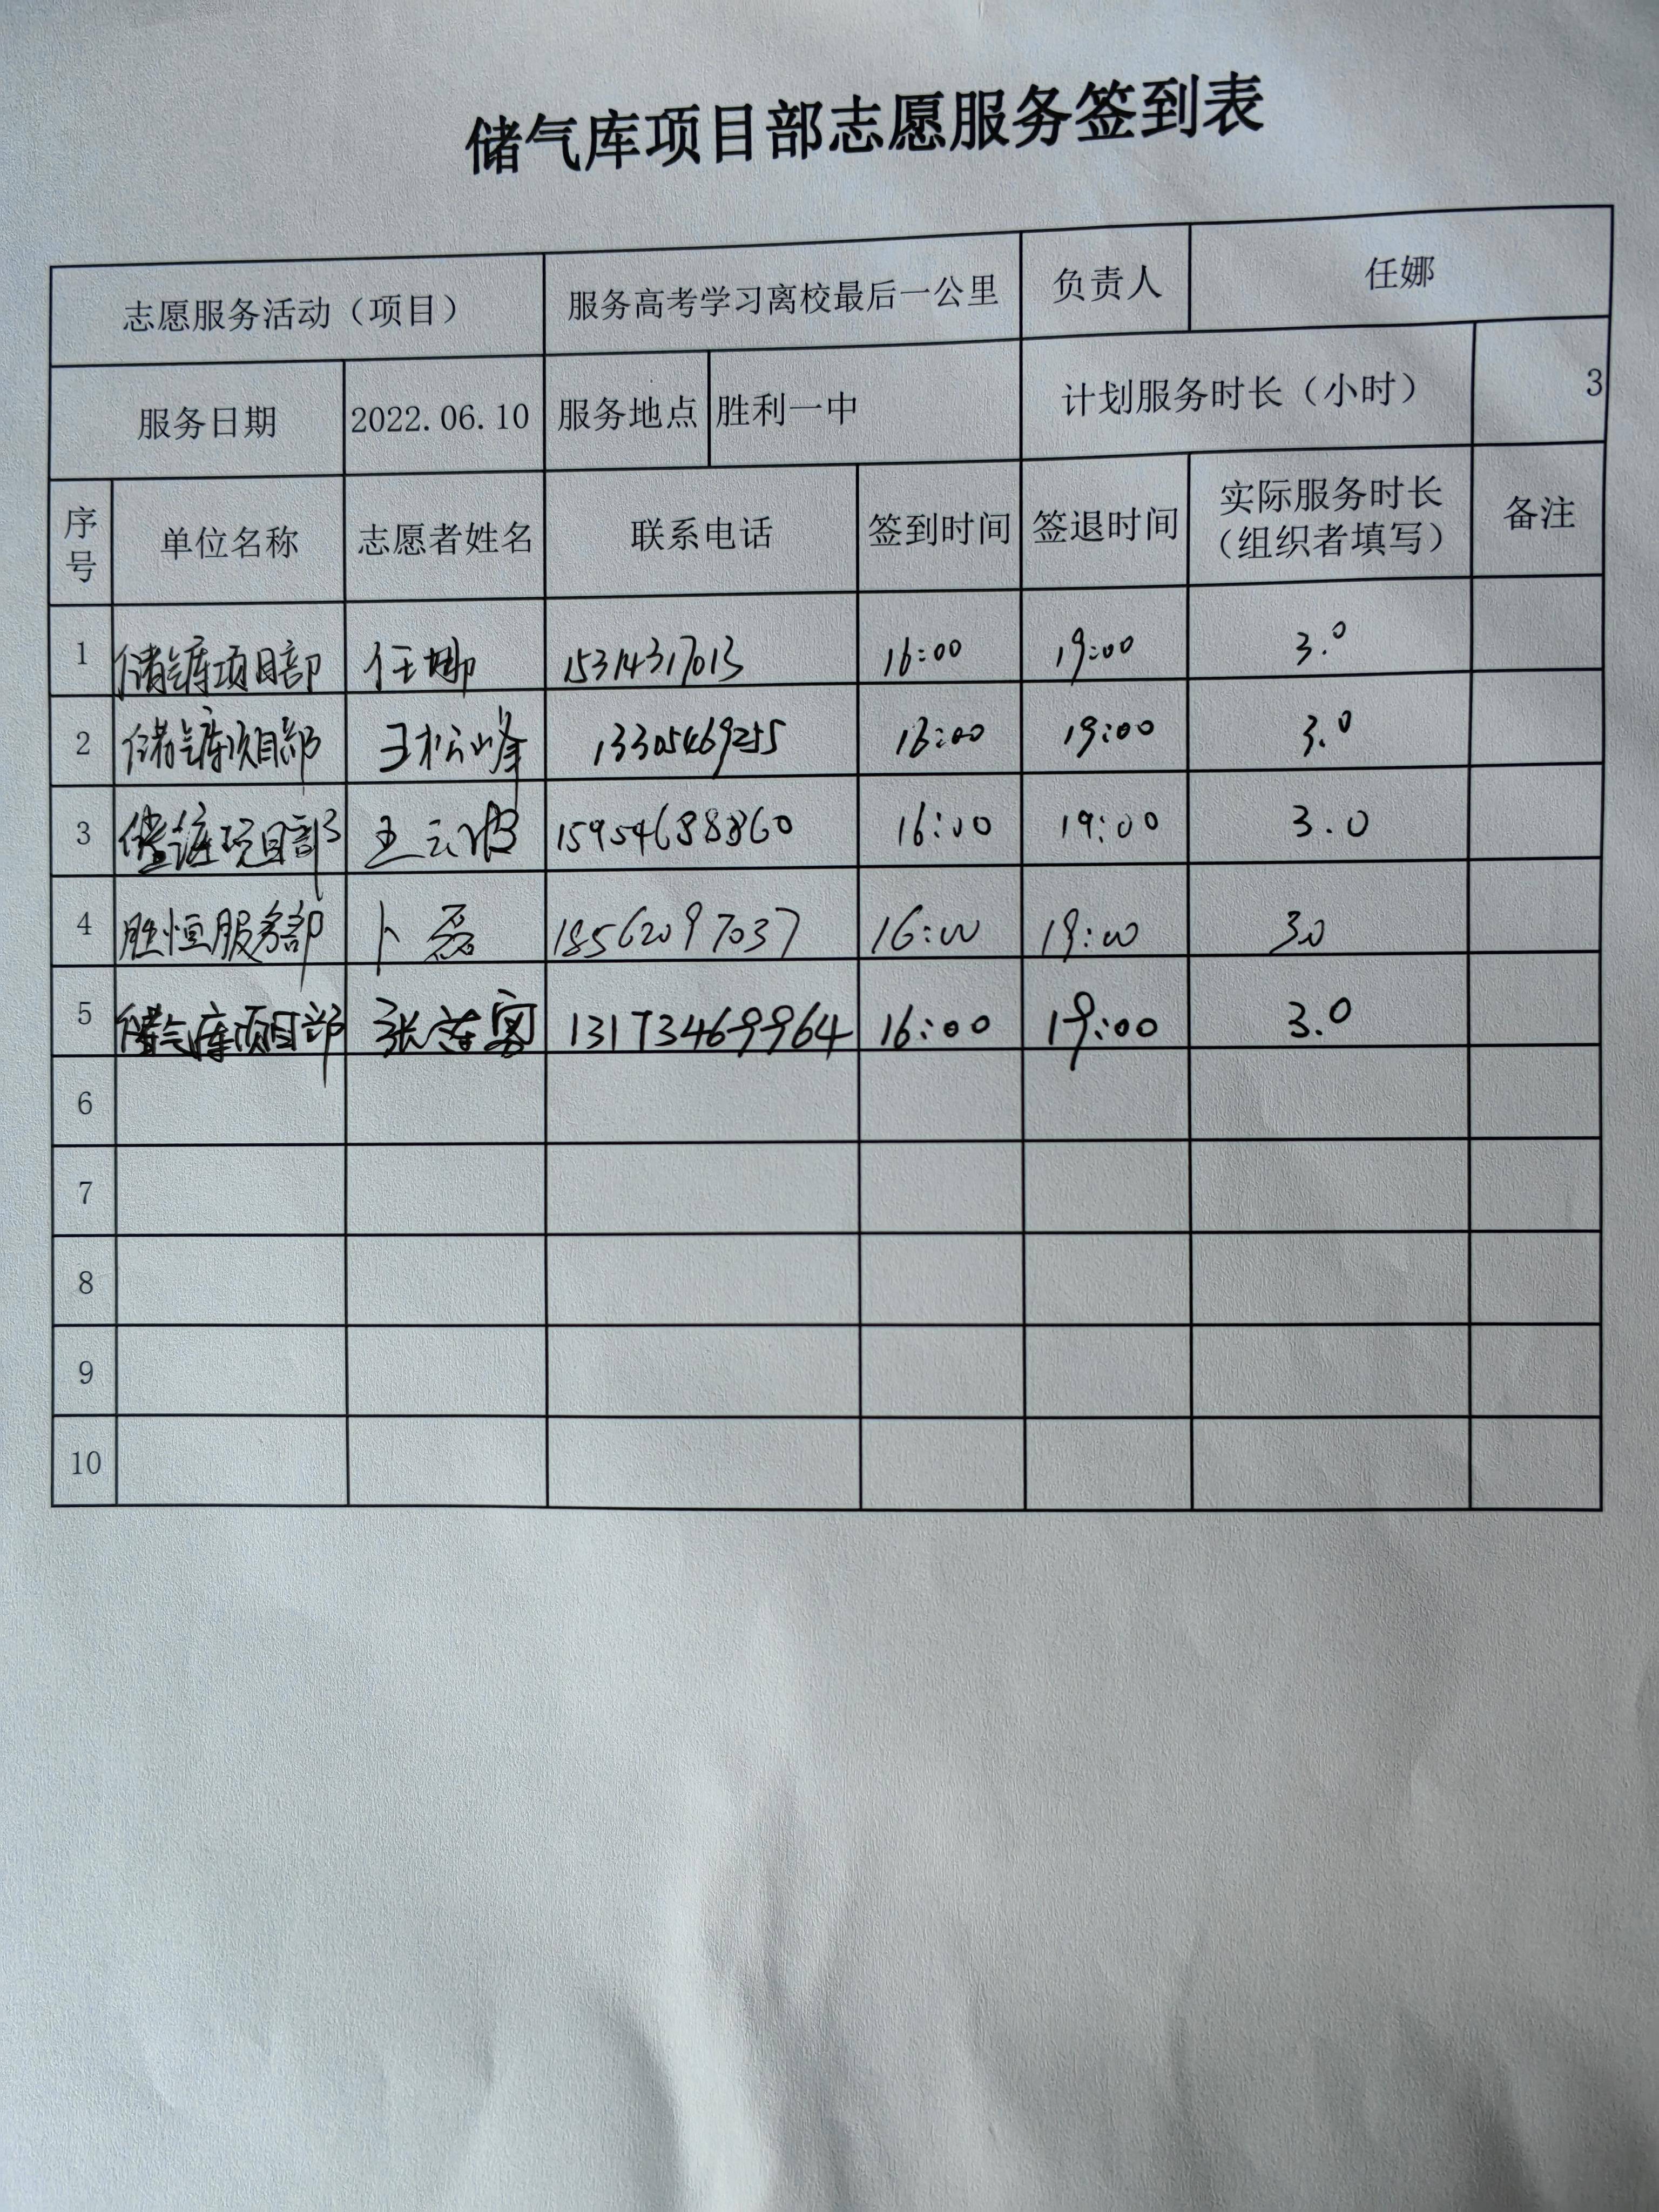 储气库项目部志愿服务签到表
志愿服务活动（项目） 服务高考学习离校最后一公里 负责人 任娜
服务日期 2022.06.10 服务地点 胜利一中 计划服务时长（小时） 3
序号 单位名称 志愿者姓名 联系电话 签到时间 签退时间 实际服务时长（组织者填写） 备注
1 储气库项目部 任娜 15314317013 16:00 19:00 3.0
2 储气库项目部 王松峰 13305469255 16:00 19:00 3.0
3 储气库项目部 王云波 15954688860 16:00 19:00 3.0
4 胜恒服务部 卜磊 18562097037 16:00 19:00 3.0
5 储气库项目部 张 13173469964 16:00 19:00 3.0
6
7
8
9
10